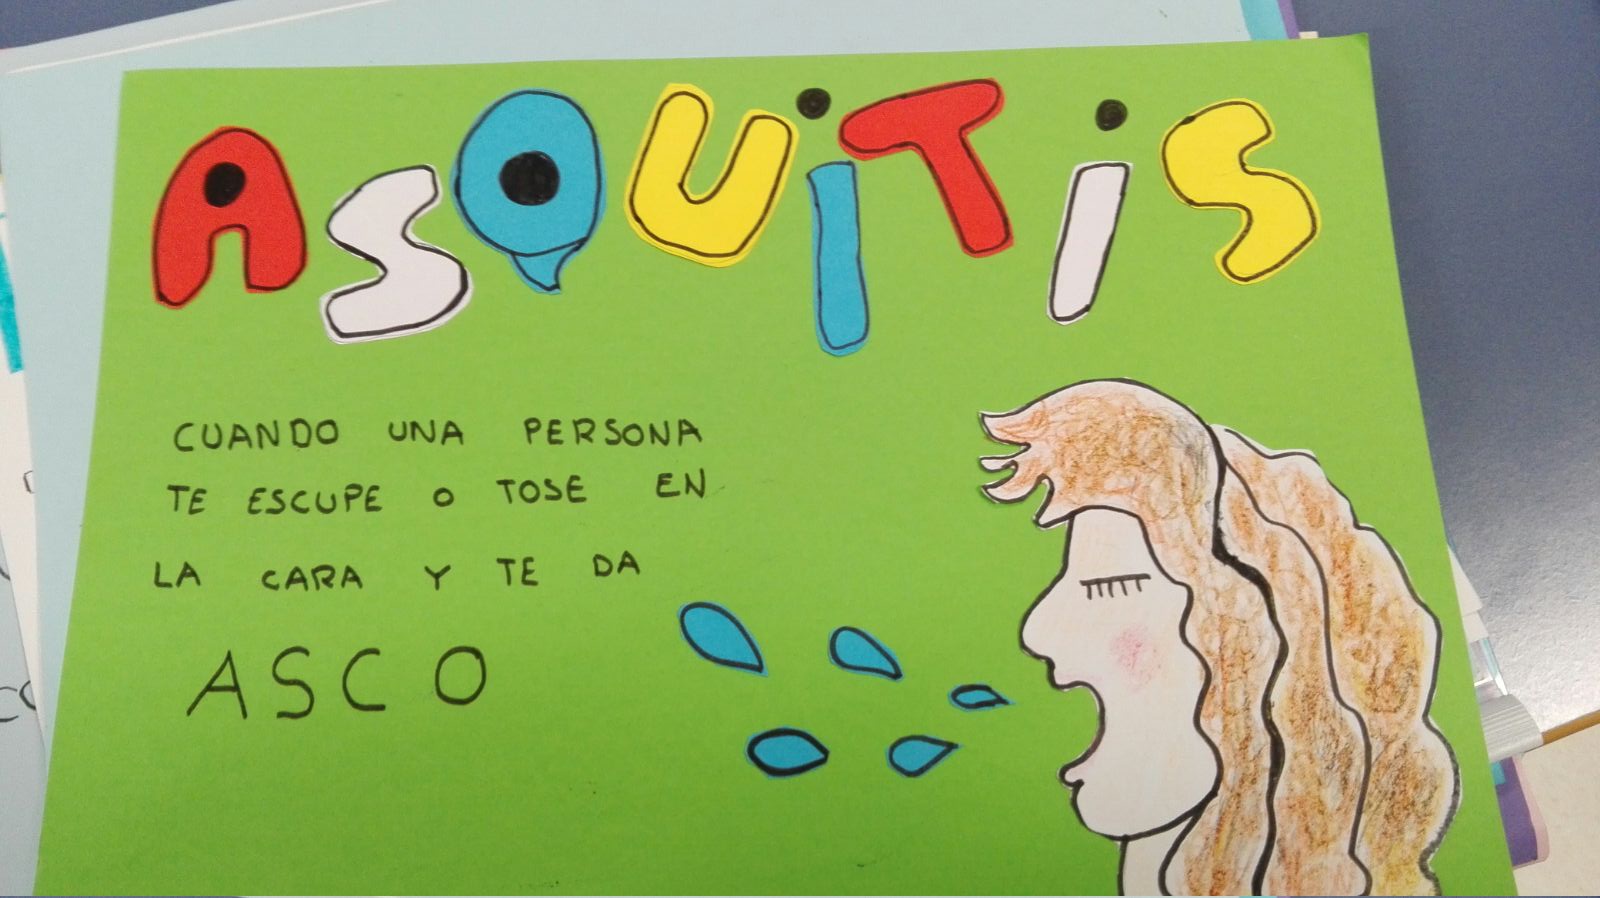 ASQUiTiS
CUANDO UNA PERSONA
TE ESCUPE O TOSE EN
LA CARA Y TE DA
ASCO